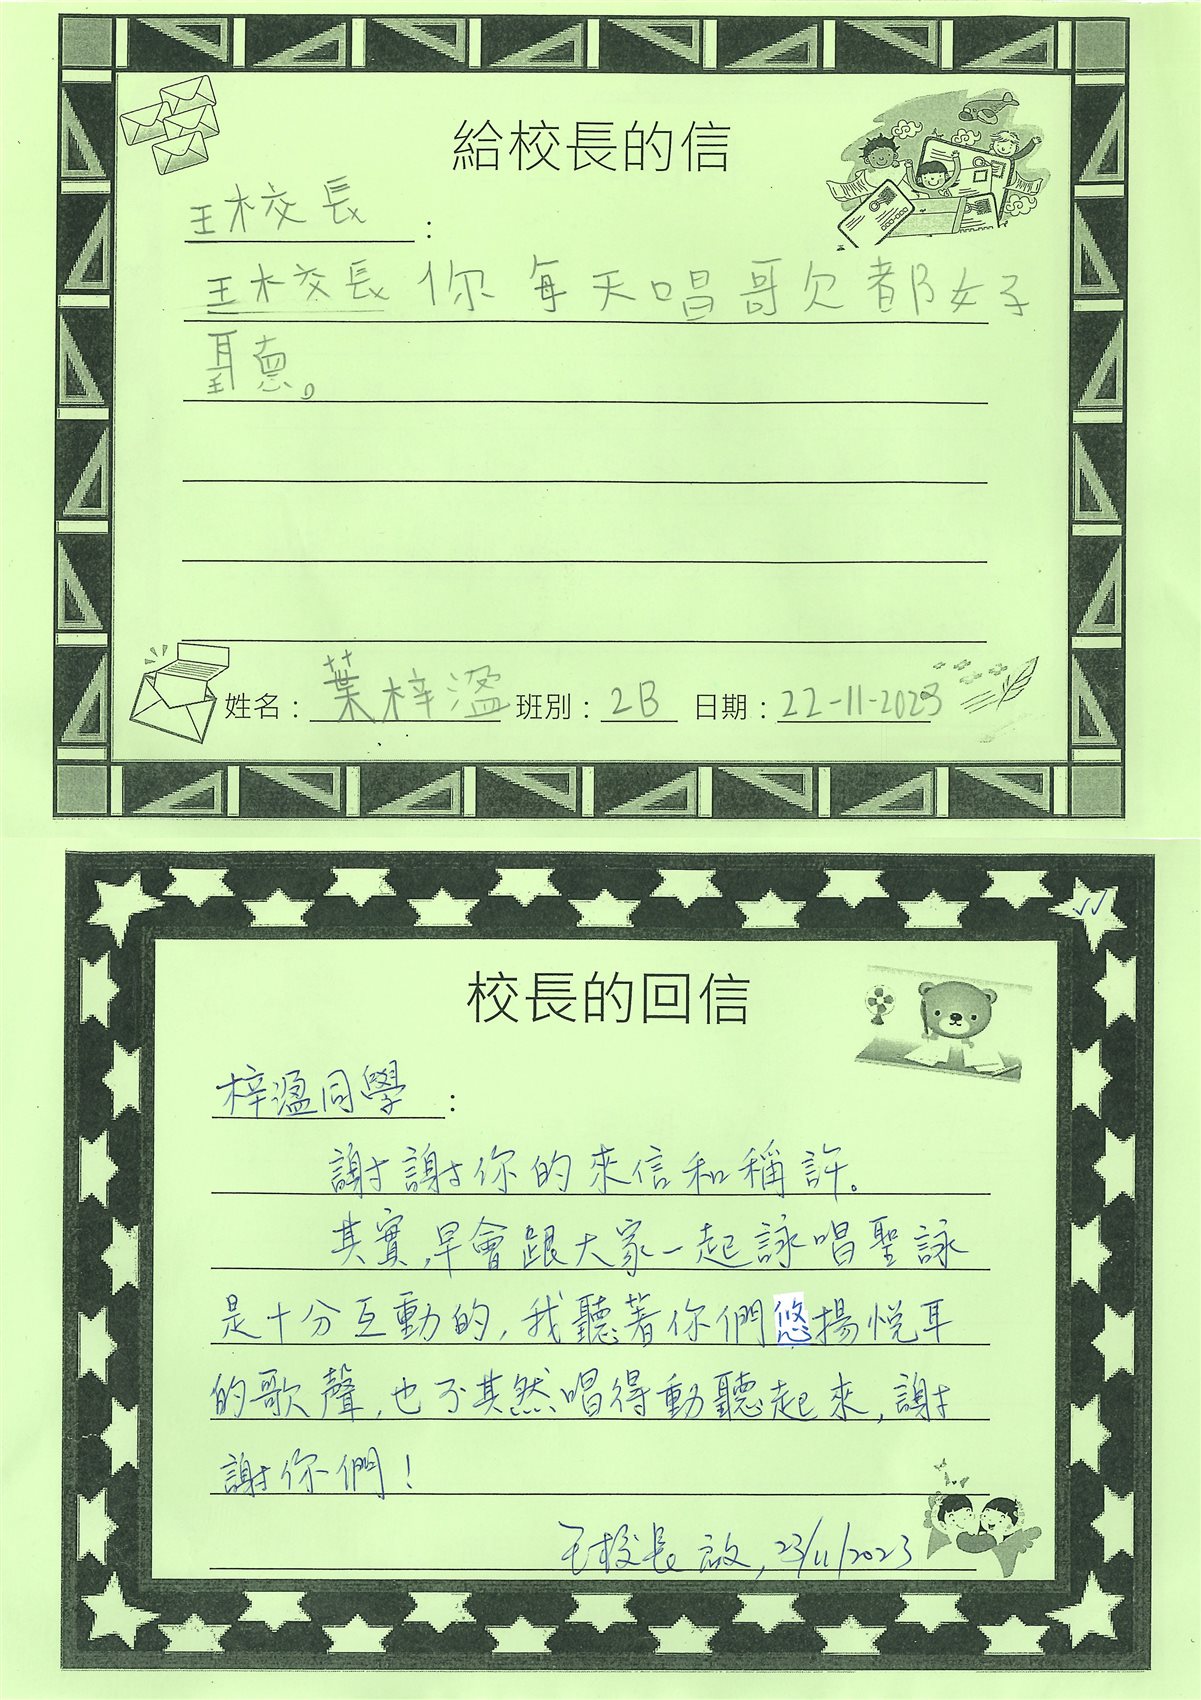 給校長的信
王校長：
王校長你每天唱歌都好
聽。
姓名：葉梓溋 班別：2B 日期：22-11-2023
校長的回信
梓溋同學：
謝謝你的來信和稱許。
其實，早會跟大家一起詠唱聖詠
是十分互動的，我聽著你們悠揚悅耳
的歌聲，也不其然唱得動聽起來，謝
謝你們！
王校長 啟，23/11/2023